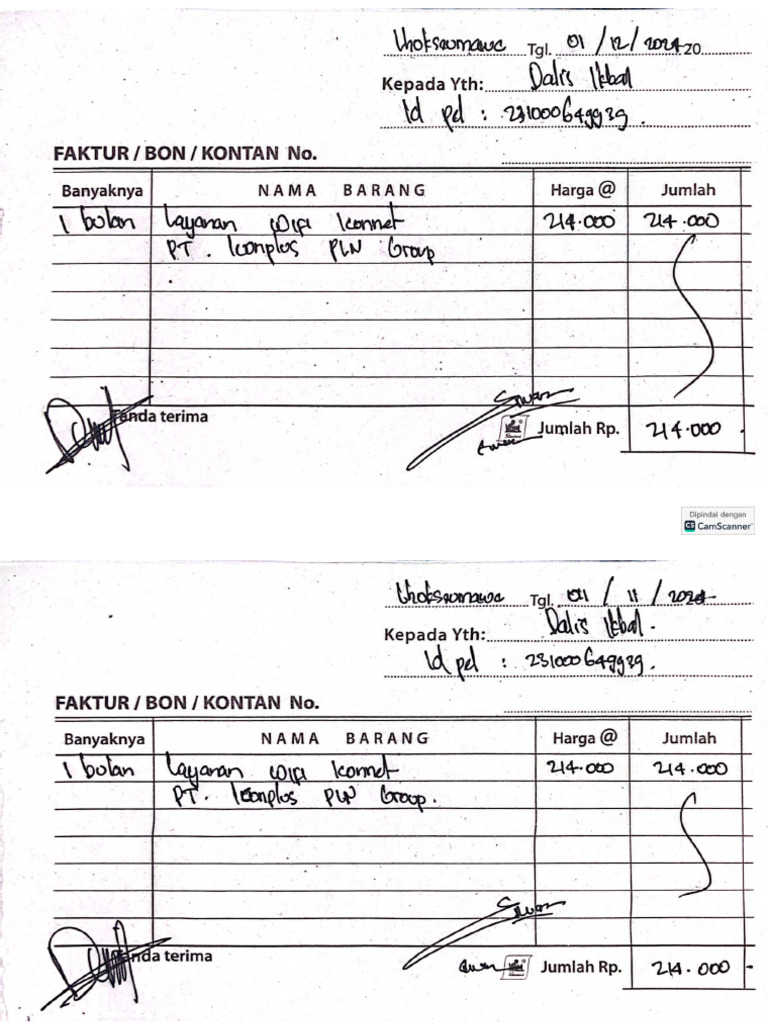 Lhokseumawe Tgl. 01 / 12 / 2024 20
Kepada Yth: Dalis Ikbal
Id pel : 231000649939.
FAKTUR / BON / KONTAN No.
Banyaknya NAMA BARANG Harga @ Jumlah
1 bulan Layanan Wifi Iconnet 214.000 214.000
PT. Iconplus PLN Group
Tanda terima Jumlah Rp. 214.000 -
Dipindai dengan
CS CamScanner
Lhokseumawe Tgl. 04 / 11 / 2024
Kepada Yth: Dalis Ikbal.
Id pel : 231000649939.
FAKTUR / BON / KONTAN No.
Banyaknya NAMA BARANG Harga @ Jumlah
1 bulan Layanan Wifi Iconnet 214.000 214.000
PT. Iconplus PLN Group.
Tanda terima Jumlah Rp. 214.000 -